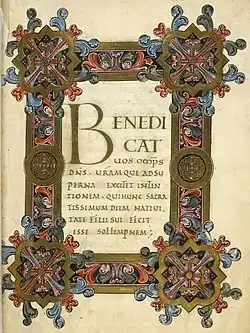 BENEDI
CAT
UOS OMPS
DNS · URAM QUI AD SU
PERNA EXCITET INTEN
TIONEM · QUI HUNC SACRA
TISSIMUM DIEM NATIVI
TATE FILII SUI FECIT
ESSE SOLLEMPNEM;